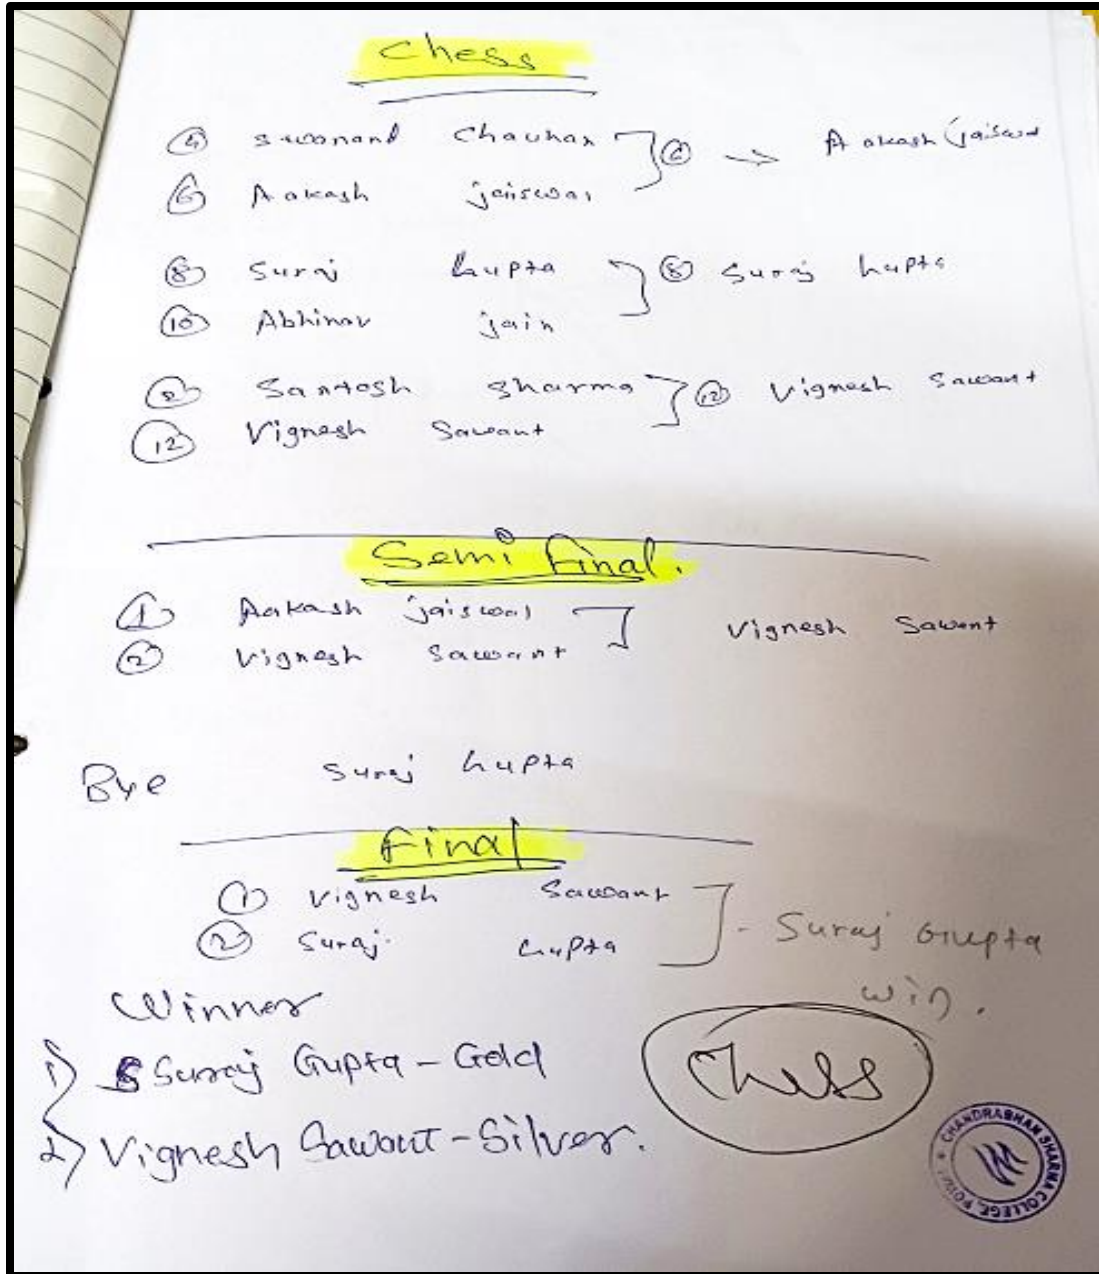 Chess
④ Swanand Chauhan ] ⑥ → Aakash jaiswal
⑥ Aakash jaiswal
⑧ Suraj Gupta ] ⑧ Suraj Gupta
⑩ Abhinav jain
② Santosh Sharma ] ⑫ Vignesh Sawant
⑫ Vignesh Sawant
Semi Final.
① Aakash jaiswal ] Vignesh Sawant
② Vignesh Sawant
Bye Suraj Gupta
Final
① Vignesh Sawant ] - Suraj Gupta
② Suraj Gupta
win.
Winner
1) Suraj Gupta - Gold
Chess
2) Vignesh Sawant - Silver.
CHANDRABHAN SHARMA COLLEGE, POWAI